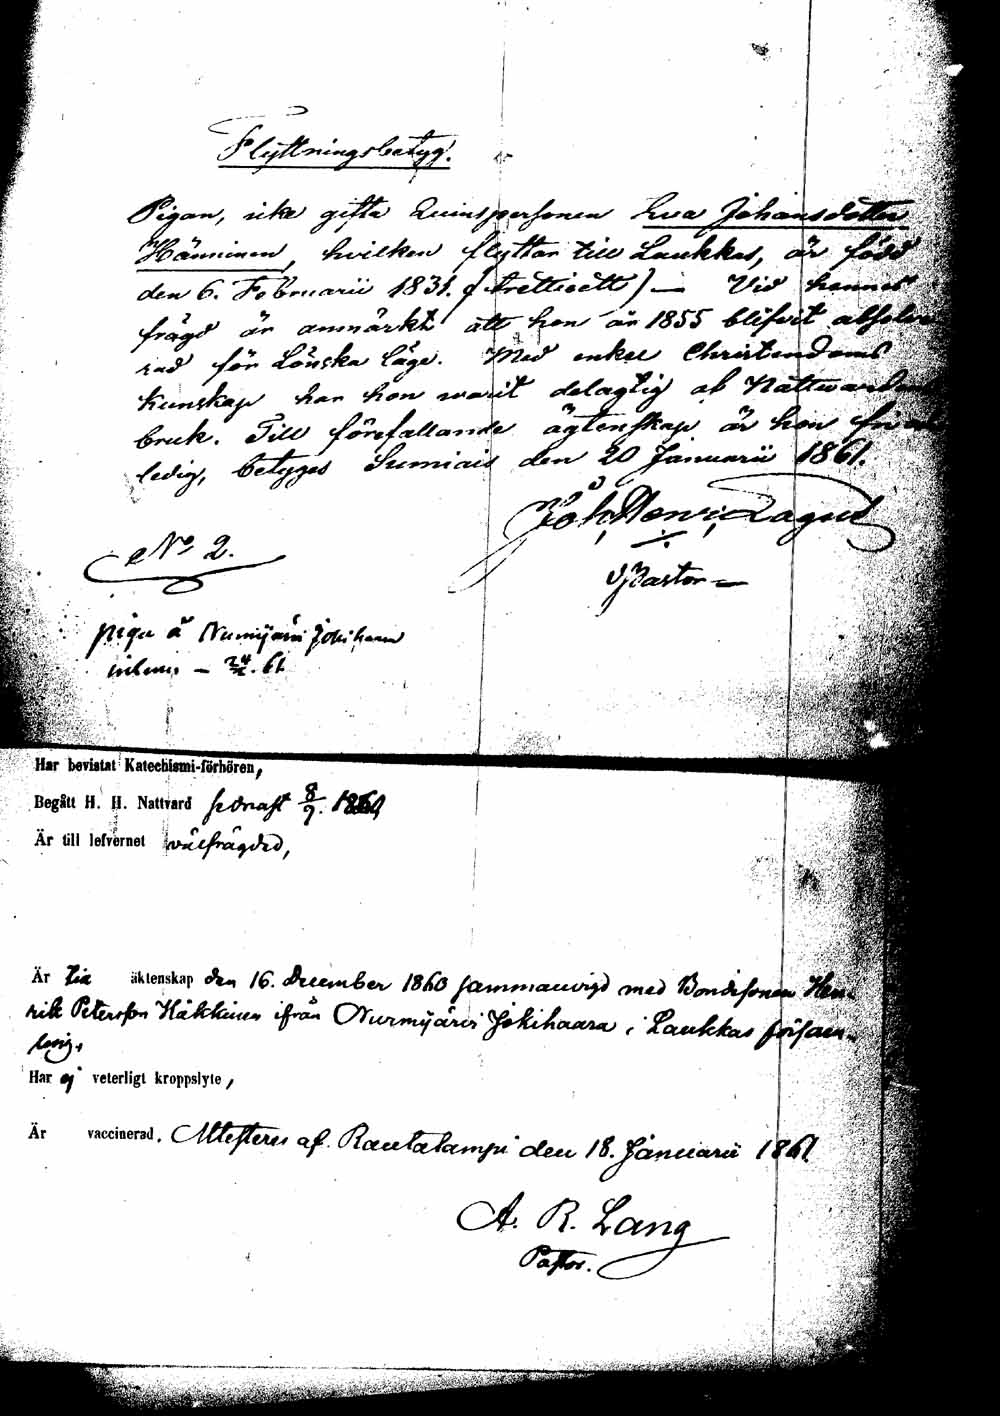 Flyttningsbetyg.
Pigan, icke gifta Quinspersonen Eva Johansdotter
Hänninen, hvilken flyttar till Laukkas, är född
den 6. Februarii 1831. (trettioett) — Vid hennes
frägd är anmärkt att hon år 1855 blifvit absolve-
rad för Lönska läge. Med enkel Christendoms
kunskap har hon warit delagtig af Nattwardens
bruk. Till förefallande ägtenskap är hon fri och
ledig, betyges Sumiais den 20 Januarii 1861.
Joh. Henr. Lagus
Pastor
No 2.
piga å Nurmijärvi Jokihaara
61
Har bevistat Katechismi-förhören,
Begått H. H. Nattvard sednast 8/7. 1860,
Är till lefvernet välfrägdad,
Är till äktenskap den 16. December 1860 sammanvigd med Bondesonen Hen-
rik Petersson Häkkinen ifrån Nurmijärvi Jokihaara i Laukkas församling.
Har ej veterligt kroppslyte,
Är vaccinerad. Attesteras af Rautalampi den 18. Januarii 1861
A. R. Lang
Pastor.